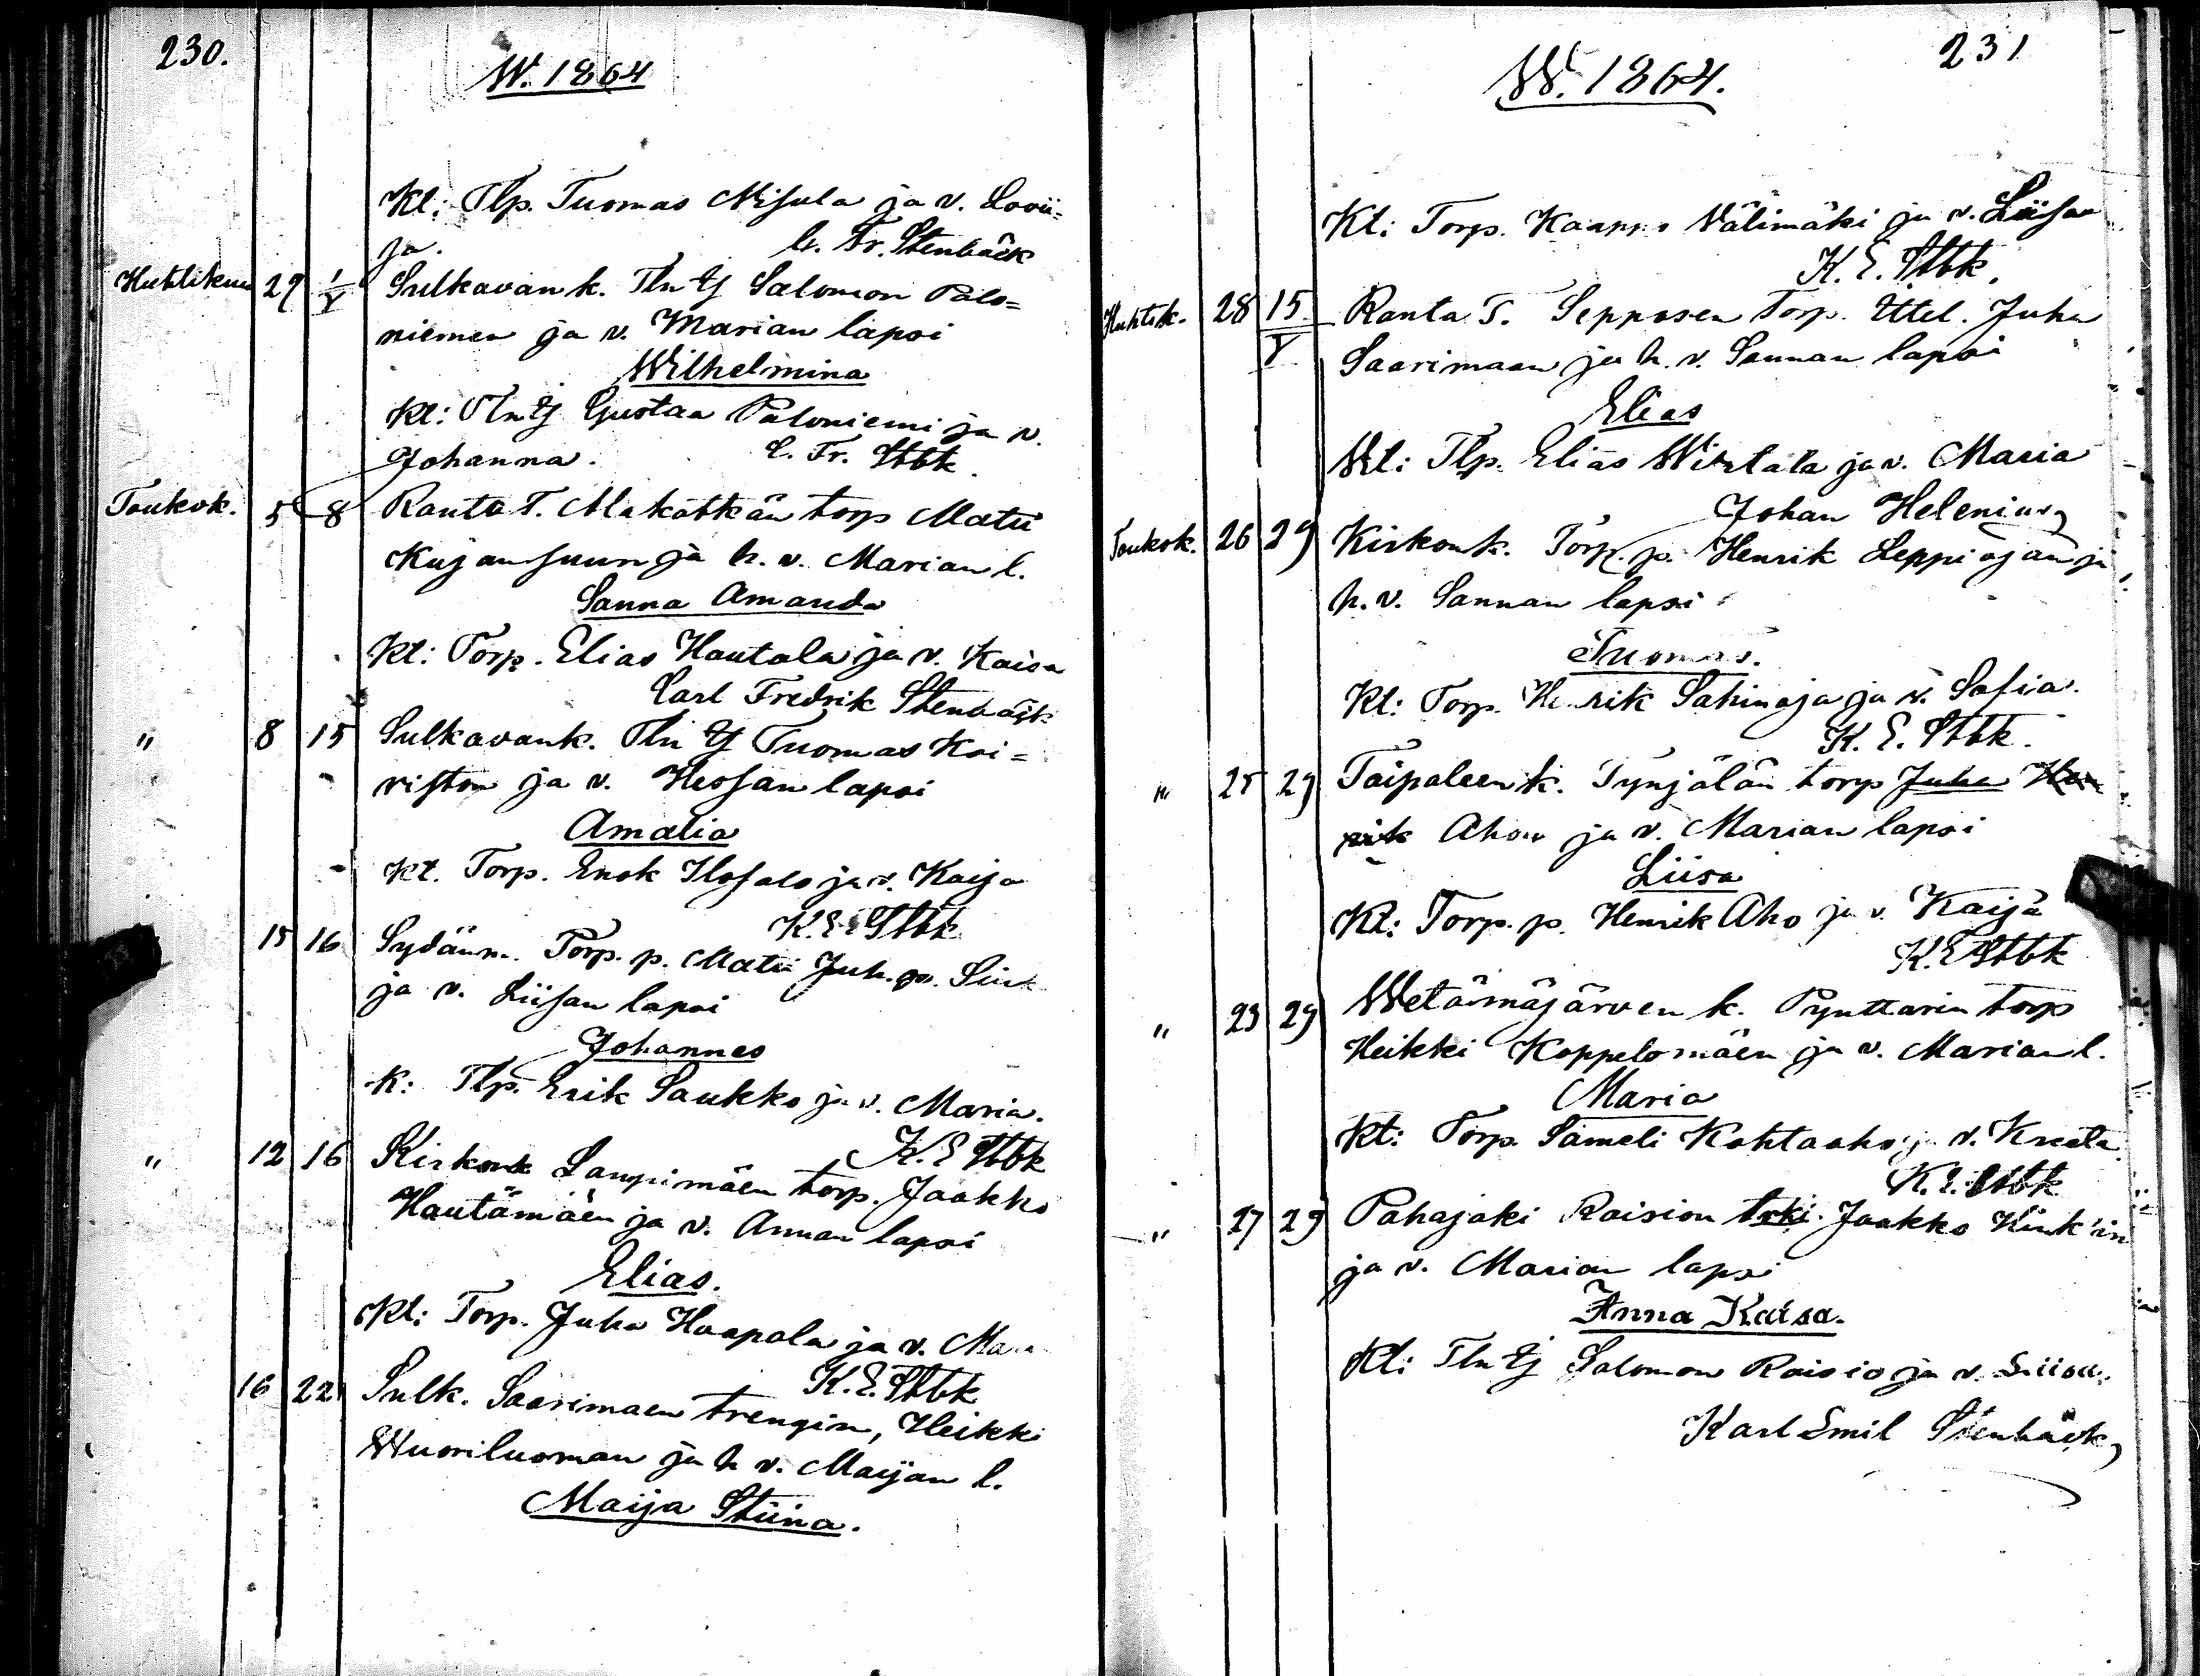 230.
W. 1864
Kt: Tlp. Tuomas Nisula ja v. Lovii-
sa. C. Fr. Stenbäck
Huhtikuu 29 1/V Sulkavan k. Tln Ij Salomon Palo=
niemen ja v. Marian lapsi
Wilhelmina
Kt: Tln Ij Gustaa Paloniemi ja v.
Johanna. C. Fr. Stbk.
Toukok. 5 8 Ranta T. Mskötkän torp Matii
Kujansuun ja h. v. Marian l.
Sanna Amanda
Kt: Torp. Elias Hautala ja v. Kaisa
Carl Fredrik Stenbäck
" 8 15 Sulkavan k. Tln Ij Tuomas Koi=
viston ja v. Hessan lapsi
Amalia
Kt. Torp. Enok Ilosalo ja v. Kaisa
K. E. Stbk
15 16 Sydänm. Torp. p. Matii Juh. p.
ja v. Liisan lapsi
Johannes
K: Tlp. Erik Saukko ja v. Maria.
K. E Stbk
" 12 16 Kirkonk Lampimäen torp. Jaakko
Hautämäen ja v. Annan lapsi
Elias.
Kt: Torp. Juha Haapala ja v.
K. E. Stbk
16 22 Sulk. Saarimaen trengin, Heikki
Wuoriluoman ja h v. Maijan l.
Maija Stiina.
231
W. 1864.
Kt: Torp. Kaappo Välimäki ja v. Liisa
K. E. Stbk.
Huhtik. 28 15/V Ranta T. Sepposen Torp. Ittel. Juha
Saarimaan ja h. v. Sannan lapsi
Elias
Kt: Tlp. Elias Wirtala ja v. Maria
Johan Helenius
Toukok. 26 29 Kirkonk. Torp. p. Henrik Leppiojan ja
h. v. Sannan lapsi
Tuomas.
Kt: Torp. Henrik Sahinoja ja v. Sofia.
K. E. Stbk.
" 25 29 Taipaleen k. Tynjälän torp Juha Hen
rik Ahon ja v. Marian lapsi
Liisa
Kt: Torp. p. Henrik Aho ja v. Kaisa
K. E Stbk
" 23 29 Wetämäjärven k. Pynttärin torp
Heikki Koppelomäen ja v. Marian l.
Maria
Kt: Torp. Sameli Kohtaaho ja v. Kreeta.
K. E. Stbk
" 27 29 Pahajaki Raision Jaakko Kink'in
ja v. Marian lapsi
Anna Kaisa.
Kt: Tln Ij Salomon Raisio ja v. Liisa.
Karl Emil Stenbäck